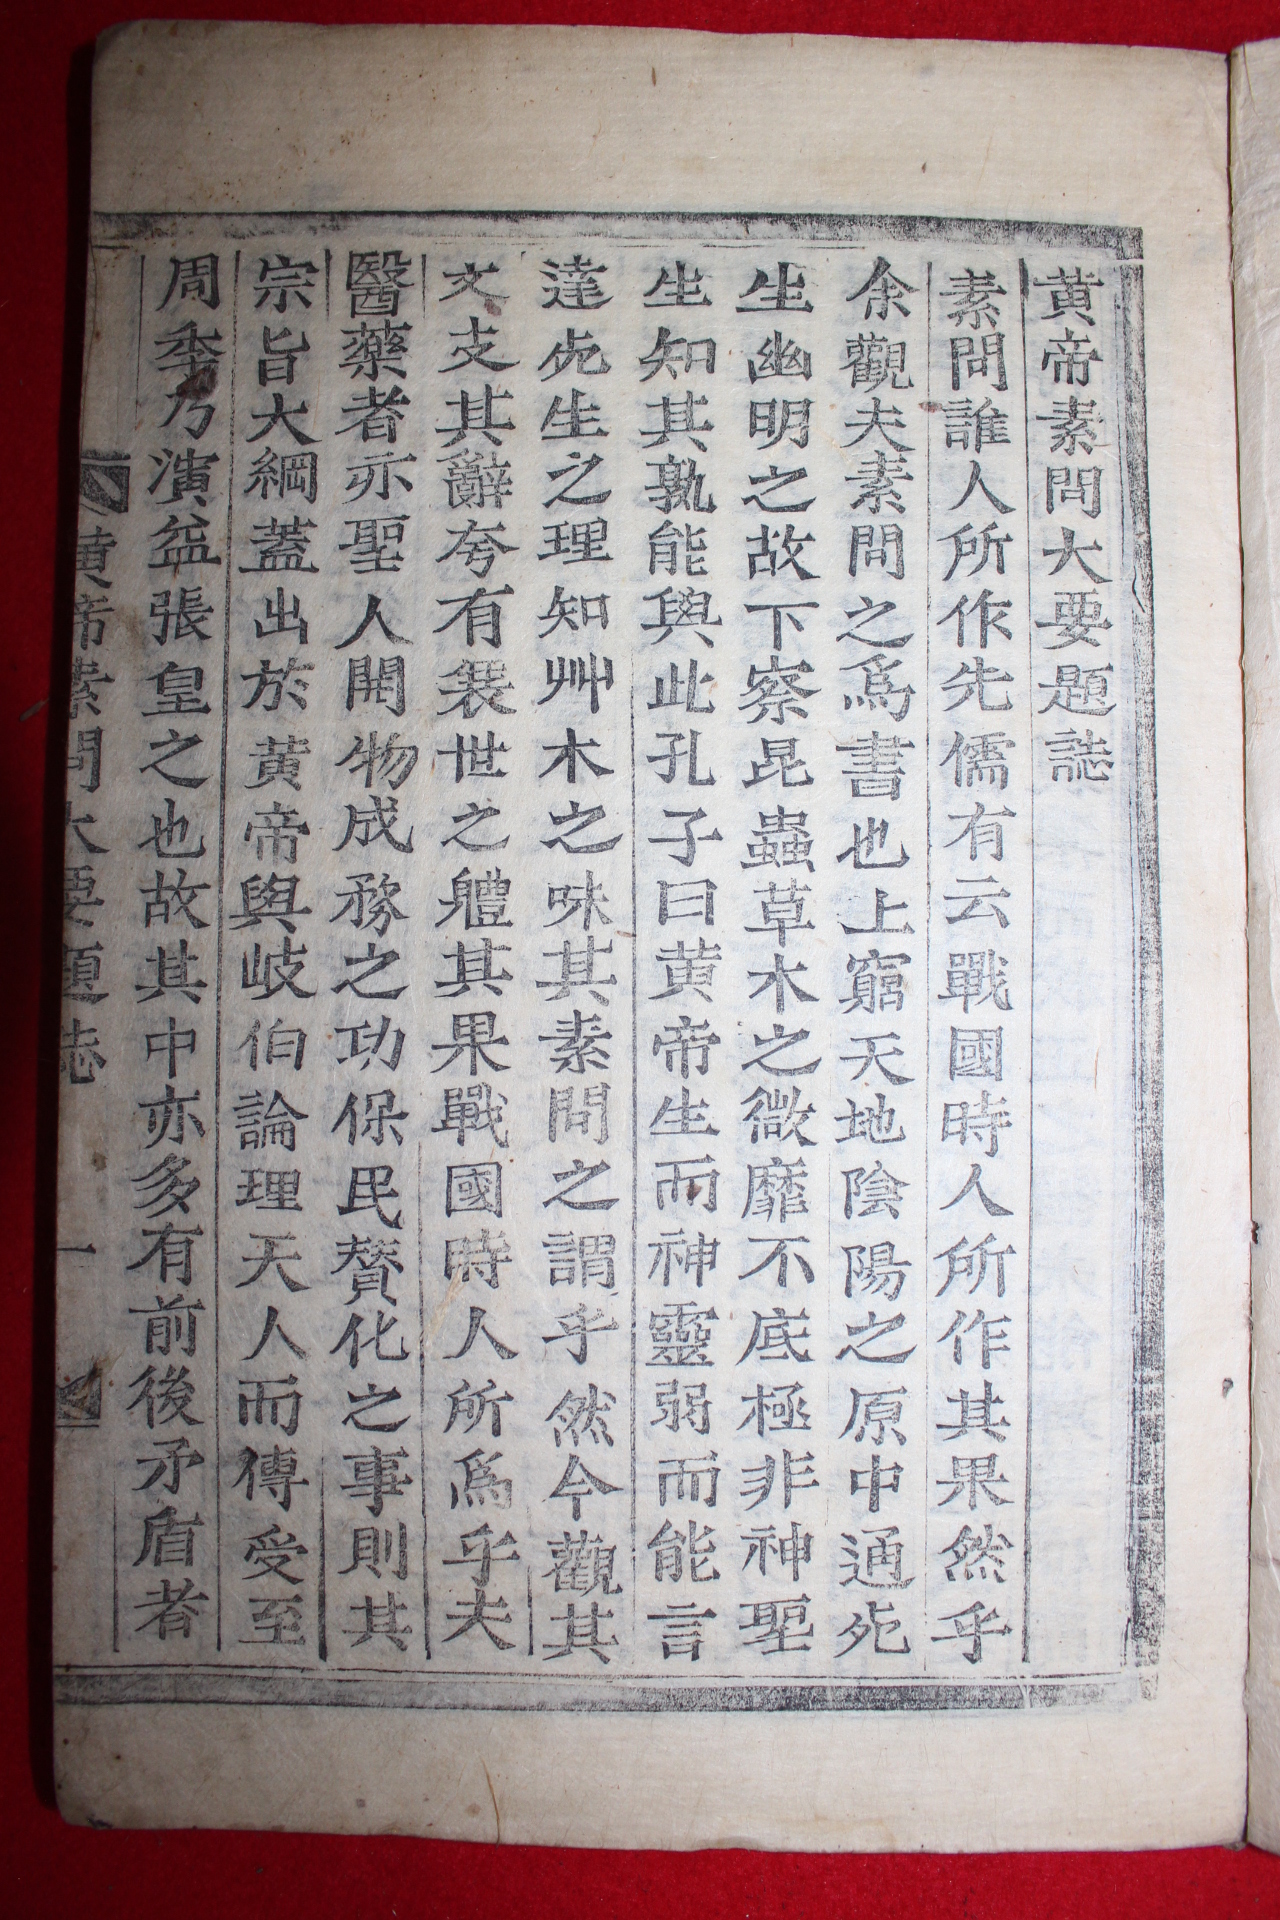 黄帝素問大要題誌
素問誰人所作先儒有云戰國時人所作其果然乎
余觀夫素問之爲書也上窮天地陰陽之原中通死
生幽明之故下察昆蟲草木之微靡不底極非神聖
生知其孰能與此孔子曰黄帝生而神靈弱而能言
達死生之理知艸木之味其素問之謂乎然今觀其
文支其辭夸有衰世之軆其果戰國時人所爲乎夫
醫藥者亦聖人開物成務之功保民賛化之事則其
宗旨大綱蓋出於黄帝與岐伯論理天人而傳受至
周季乃演益張皇之也故其中亦多有前後矛盾者
黄帝素問大要題誌 一